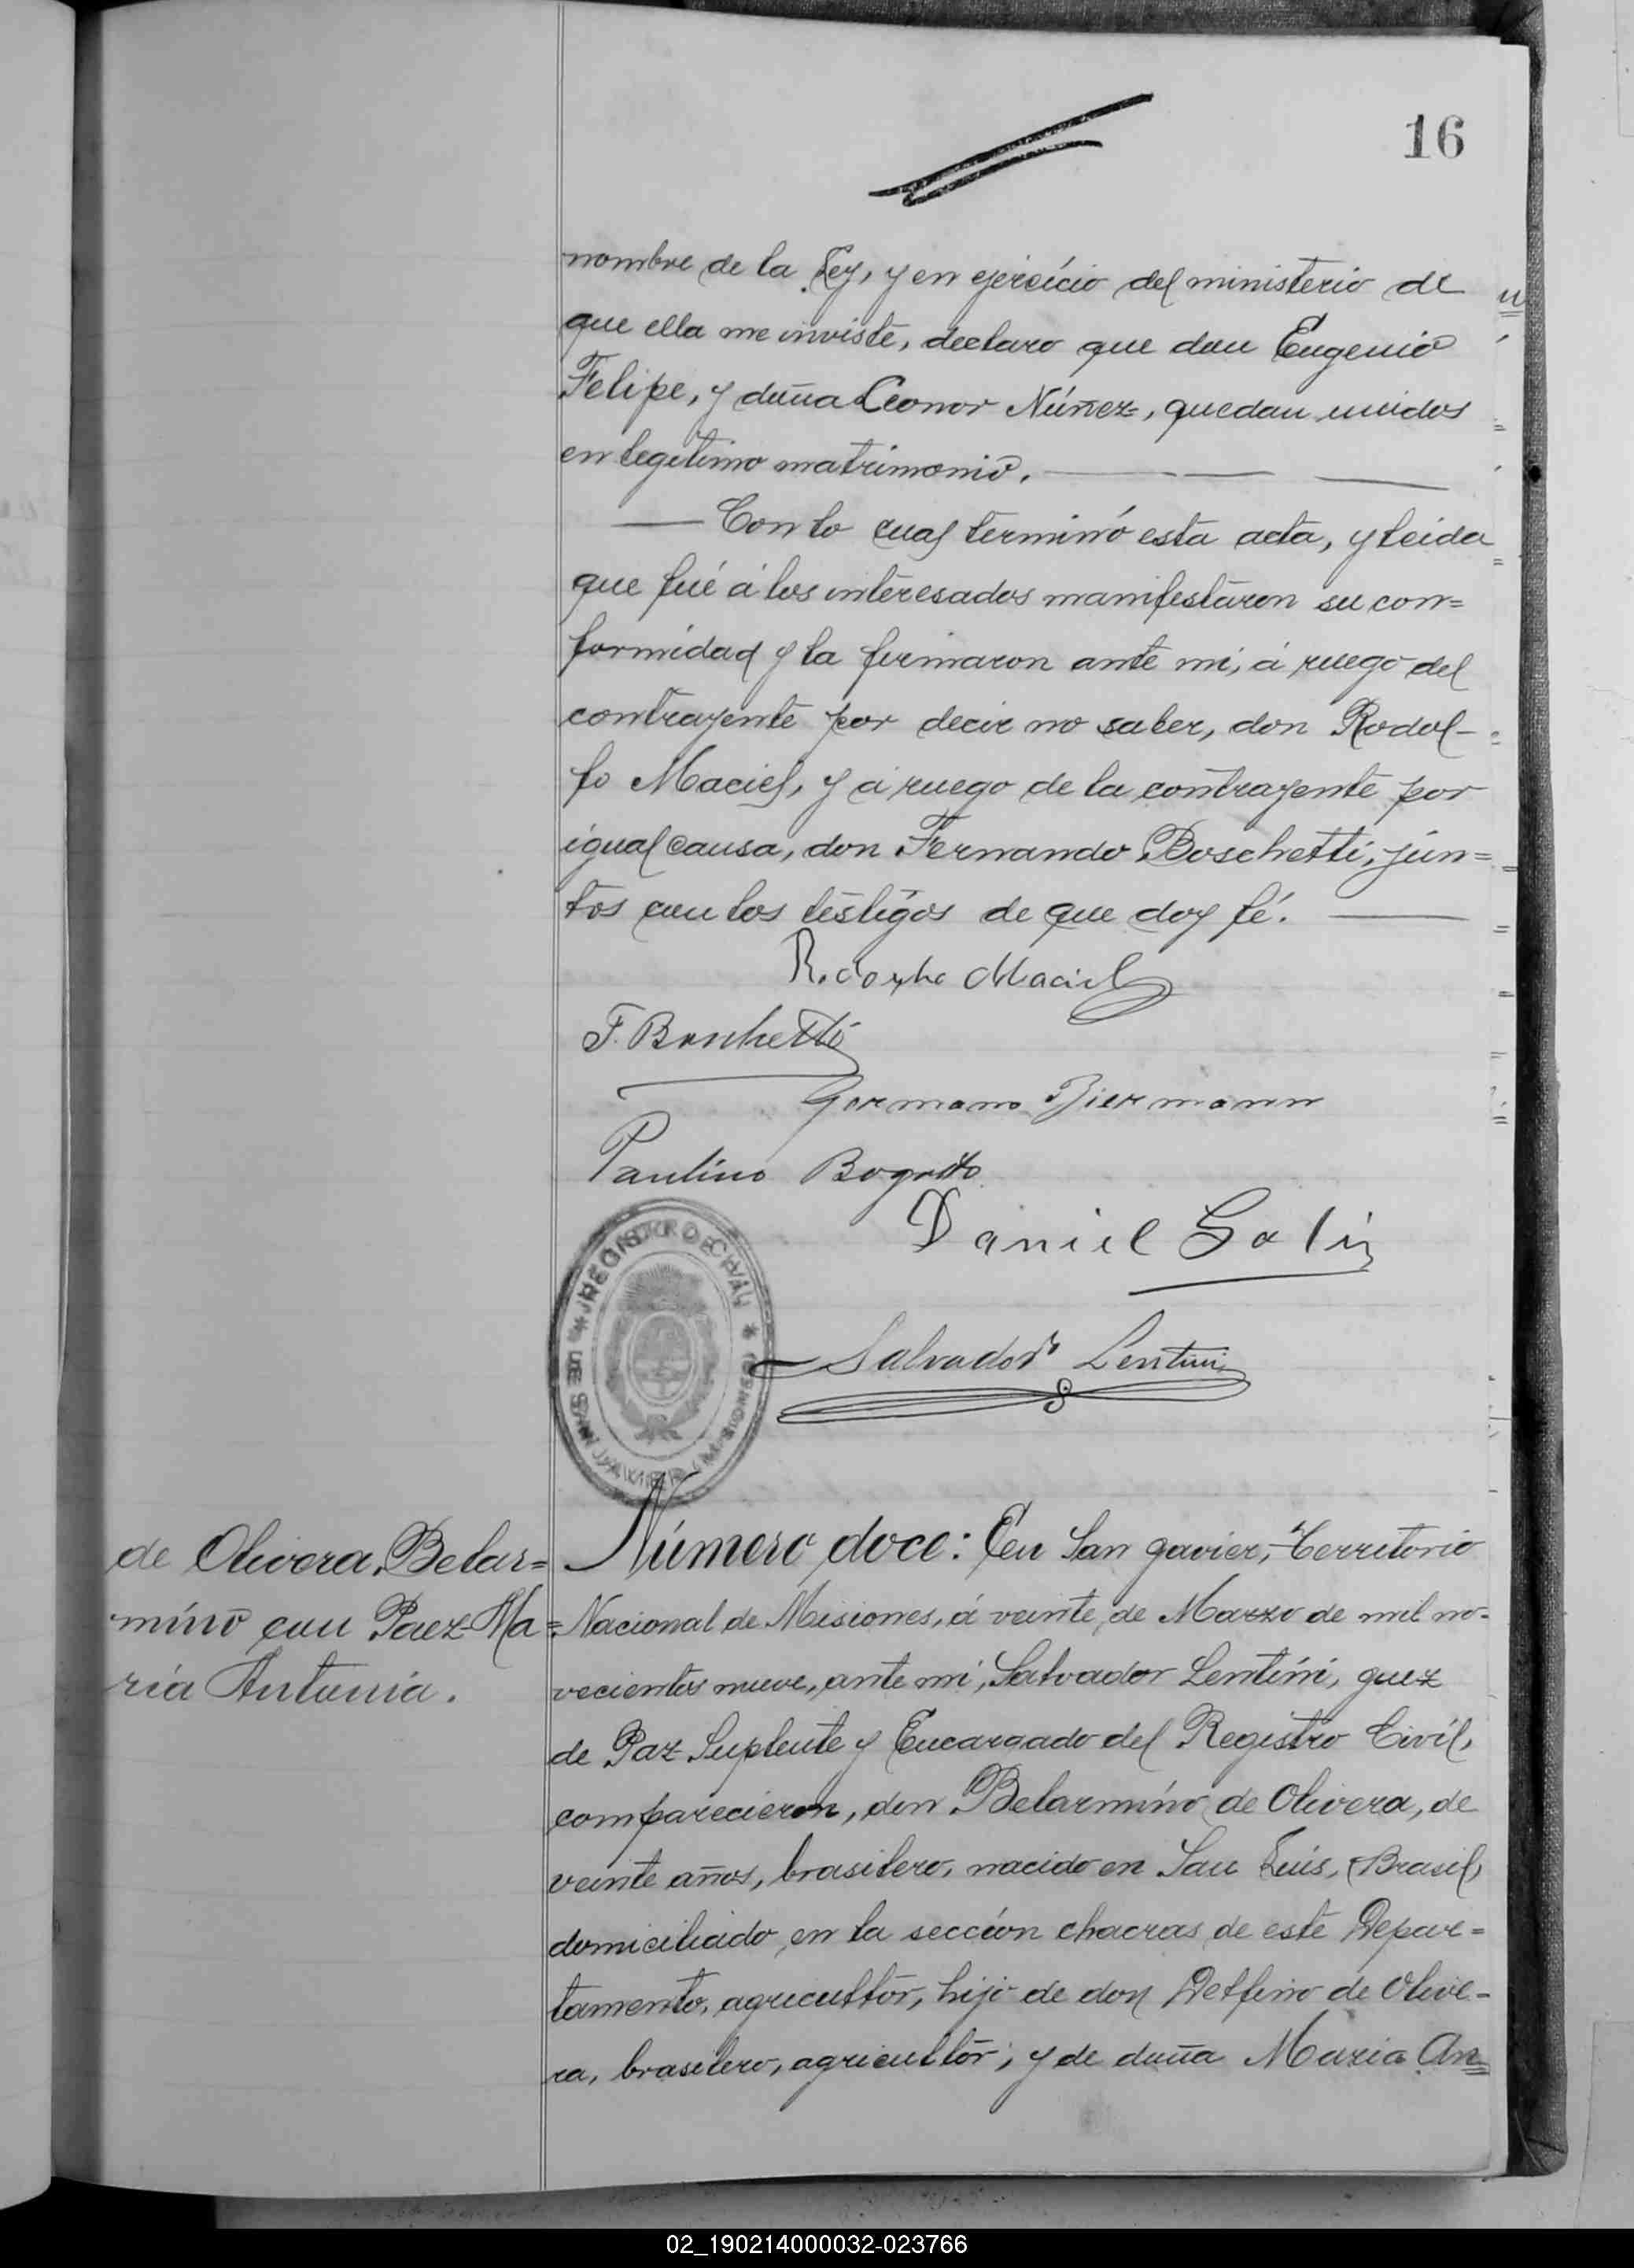 16
nombre de la Ley, y en ejercicio del ministerio de
que ella me inviste, declaro que don Eugenio
Felipe, y doña Leonor Núñez, quedan unidos
en legitimo matrimonio.
Con lo cual terminó esta acta, y leida
que fué á los interesados manifestaron su con=
formidad y la firmaron ante mi, á ruego del
contrayente por decir no saber, don Rodol-
fo Maciel, y á ruego de la contrayente por
igual causa, don Fernando Boschetti, jun=
tos con los testigos de que doy fé.
Maciel
F. Boschetti
Germano Biermann
Paulino
Daniel
Salvador Lentini
de Olivera, Belar=
mino con Paez Ma=
ria Antonia.
Número doce: En San Javier, Territorio
Nacional de Misiones, á veinte de Marzo de mil no-
vecientos nueve, ante mi, Salvador Lentini, Juez
de Paz Suplente y Encargado del Registro Civil,
comparecieron, don Belarmino de Olivera, de
veinte años, brasilero, nacido en San Luis, (Brasil)
domiciliado en la sección chacras de este Depar=
tamento, agricultor, hijo de don Delfino de Olive-
ra, brasilero, agricultor; y de doña Maria An=
02_190214000032-023766